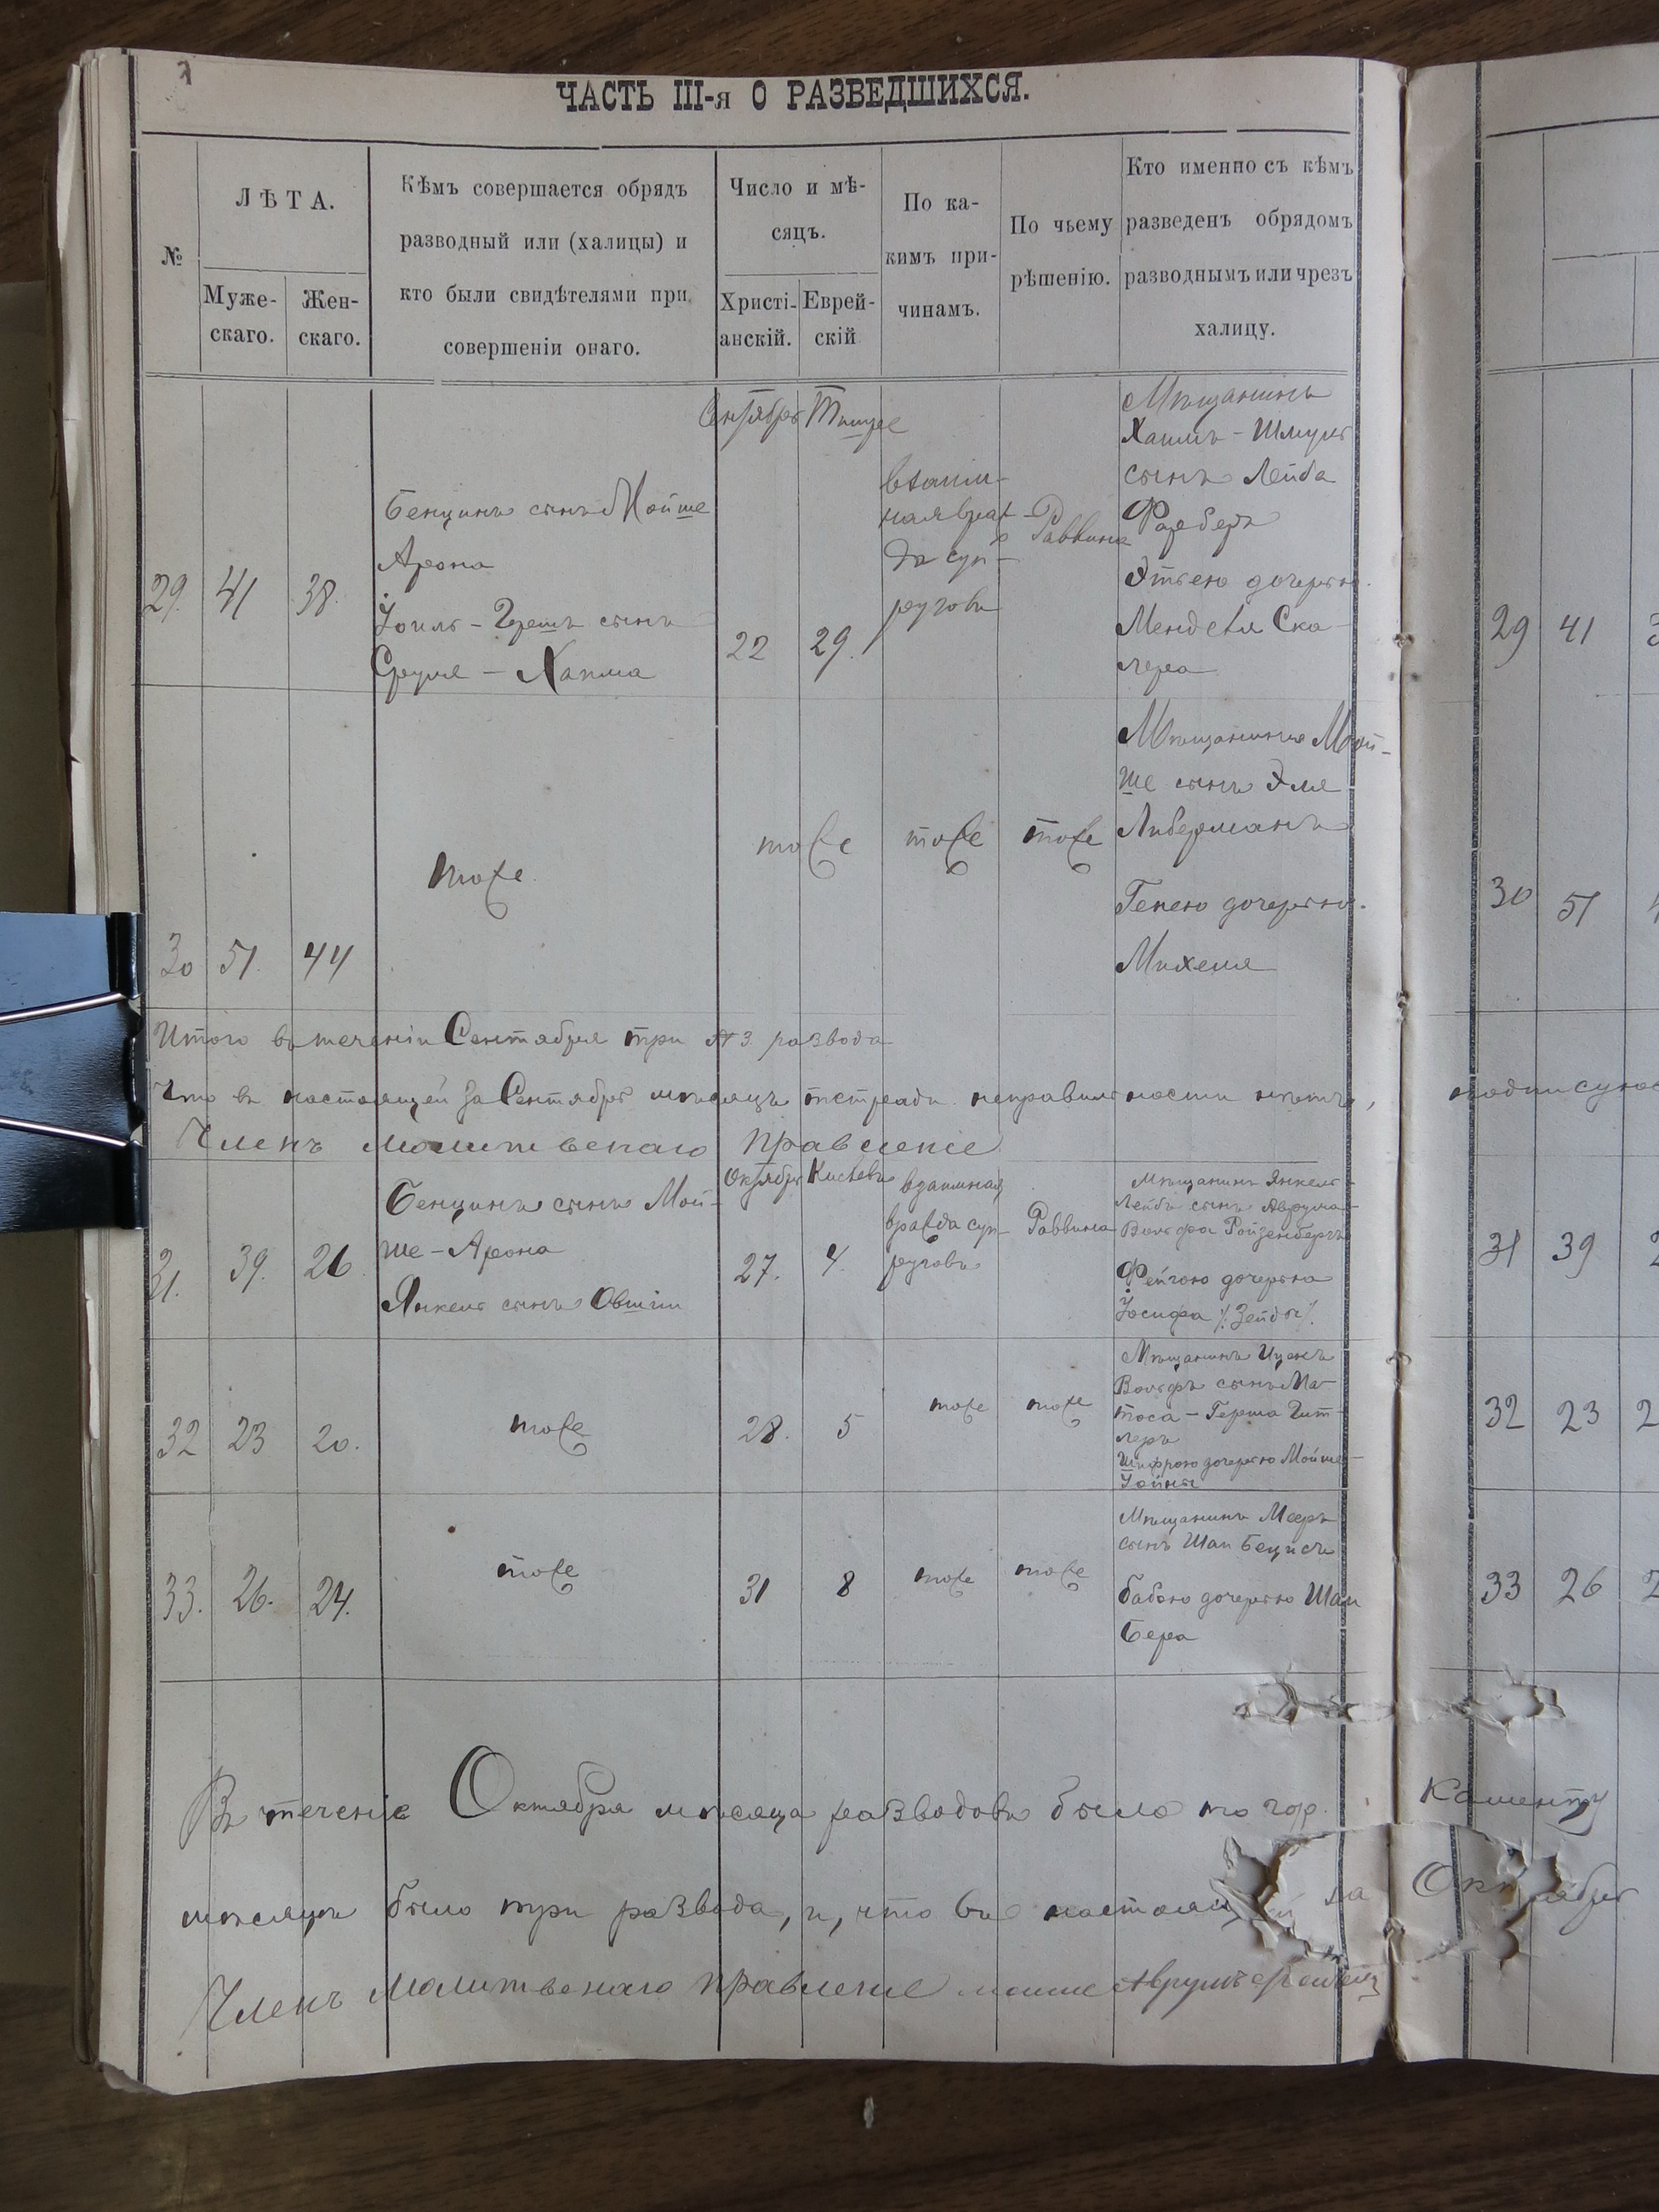 ЧАСТЬ III-я О РАЗВЕДШИХСЯ.
№
ЛѢТА.
Муже-
скаго.
Жен-
скаго.
Кѣмъ совершается обрядъ
разводный или (халицы) и
кто были свидѣтелями при
совершеніи онаго.
Число и мѣ-
сяцъ.
Христі-
анскій.
Еврей-
скій
По ка-
кимъ при-
чинамъ.
По чьему
рѣшенію.
Кто именно съ кѣмъ
разведенъ обрядомъ
разводнымъ или чрезъ
халицу.
29. 41 38.
Бенцинъ сынъ Мойше
Арона
Іоиль - Гершъ сынъ
Сруля - Хаима
Сентябрь
22
29.
взаим-
ная враж-
да суп-
руговъ
Раввина
Мѣщанинъ
Хаимъ - Шмуль
сынъ Лейба
Этлею дочерью
Менделя Ска-
лера
30 51. 44
тоже
тоже
тоже
тоже
Мѣщанинъ Мой-
ше сынъ Эля
Либерманъ
Генею дочерью
Михеля
Итого въ теченіи Сентября три № 3. развода
Что въ настоящей за Сентябрь мѣсяцъ тетради неправильности нѣтъ,
Членъ Молитвенаго Правленіе
31. 39. 26
Бенцинъ сынъ Мой-
ше - Арона
Янкель сынъ Овшіи
Октябрь
27.
Кислевъ
4.
взаимная
вражда суп-
руговъ
Раввина
Мѣщанинъ Янкель-
Лейбъ сынъ Аврума-
Вольфа Ройзенбергъ
Фейгою дочерью
Іосифа /: Зейды :/.
32 23 20.
тоже
28. 5
тоже
тоже
Мѣщанинъ Ицекъ
Вольфъ сынъ Ма-
тоса - Герша Гит-
леръ
Шифрою дочерью Мойше-
Іойны
33. 26. 24.
тоже
31 8
тоже
тоже
Мѣщанинъ Мееръ
сынъ Шаи
Бабою дочерью Шаи
Бера
Въ теченіе Октября мѣсяца разводовъ было по гор.
мѣсяцъ было три развода, и, что въ за
Членъ Молитвенаго Правленіе
29 41
30 51
подписуюс
31 39
32 23 2
33 26 2
Каменцу